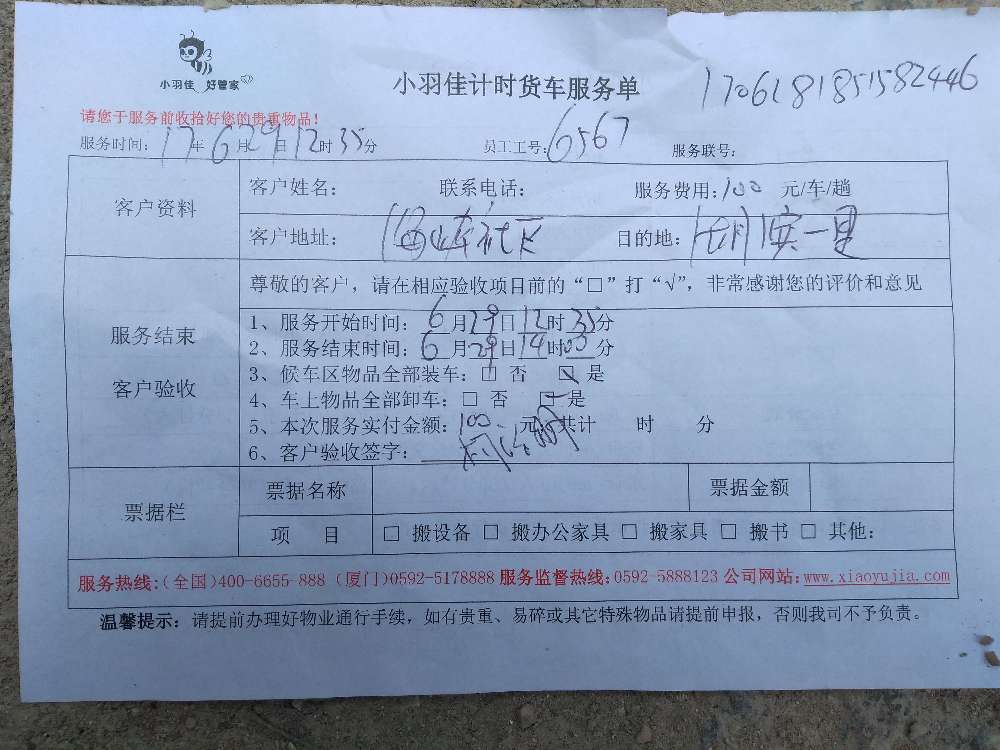 小羽佳 好管家
小羽佳计时货车服务单
1706181851582446
请您于服务前收拾好您的贵重物品！
服务时间：17年6月29日12时35分 员工工号：6567 服务联号：
客户资料
客户姓名： 联系电话： 服务费用：100 元/车/趟
客户地址： 社区 目的地： 一里
服务结束
客户验收
尊敬的客户，请在相应验收项目前的“□”打“√”，非常感谢您的评价和意见
1、服务开始时间：6月29日12时35分
2、服务结束时间：6月29日14时03分
3、候车区物品全部装车：□ 否 ☑ 是
4、车上物品全部卸车：□ 否 ☑ 是
5、本次服务实付金额：100元 共计 时 分
6、客户验收签字：
票据栏
票据名称 票据金额
项 目 □ 搬设备 □ 搬办公家具 □ 搬家具 □ 搬书 □ 其他：
服务热线：(全国)400-6655-888 (厦门)0592-5178888 服务监督热线：0592-5888123 公司网站：www.xiaoyujia.com
温馨提示：请提前办理好物业通行手续，如有贵重、易碎或其它特殊物品请提前申报，否则我司不予负责。